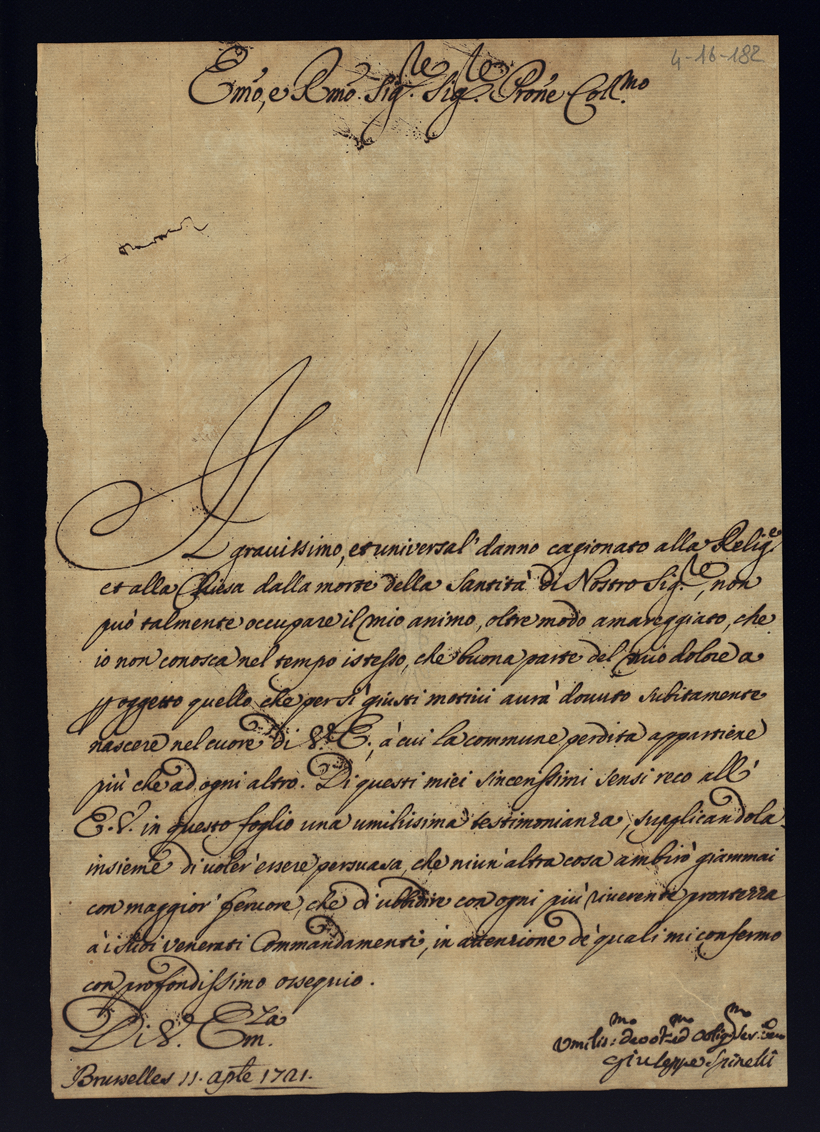 4-16-182
Emo, e Rmo Sig.re Sig.re Prone Coll.mo
Il gravissimo, et universal' danno cagionato alla Relig.e
et alla Chiesa dalla morte della Santità di Nostro Sig.re, non
può talmente occupare il mio animo, oltre modo amareggiato, che
io non conosca nel tempo istesso, che buona parte del mio dolore a
p oggetto quello che per sì giusti motivi aurà dovuto subitamente
nascere nel cuore di V.E., à cui la commune perdita appartiene
più che ad ogni altro. Di questi miei sincerissimi sensi reco all'
E.V. in questo foglio una umilissima testimonianza, supplicandola
insieme di voler' essere persuasa, che niun' altra cosa ambirò giammai
con maggior' fervore, che d'ubbidire con ogni più riverente prontezza
à i suoi venerati Commandamenti, in attenzione de' quali mi confermo
con profondissimo ossequio.
Di V. Em.za
Umilis:mo devot:mo ed oblig:mo
Giuseppe Spinelli
Brusselles 11. aple 1721.